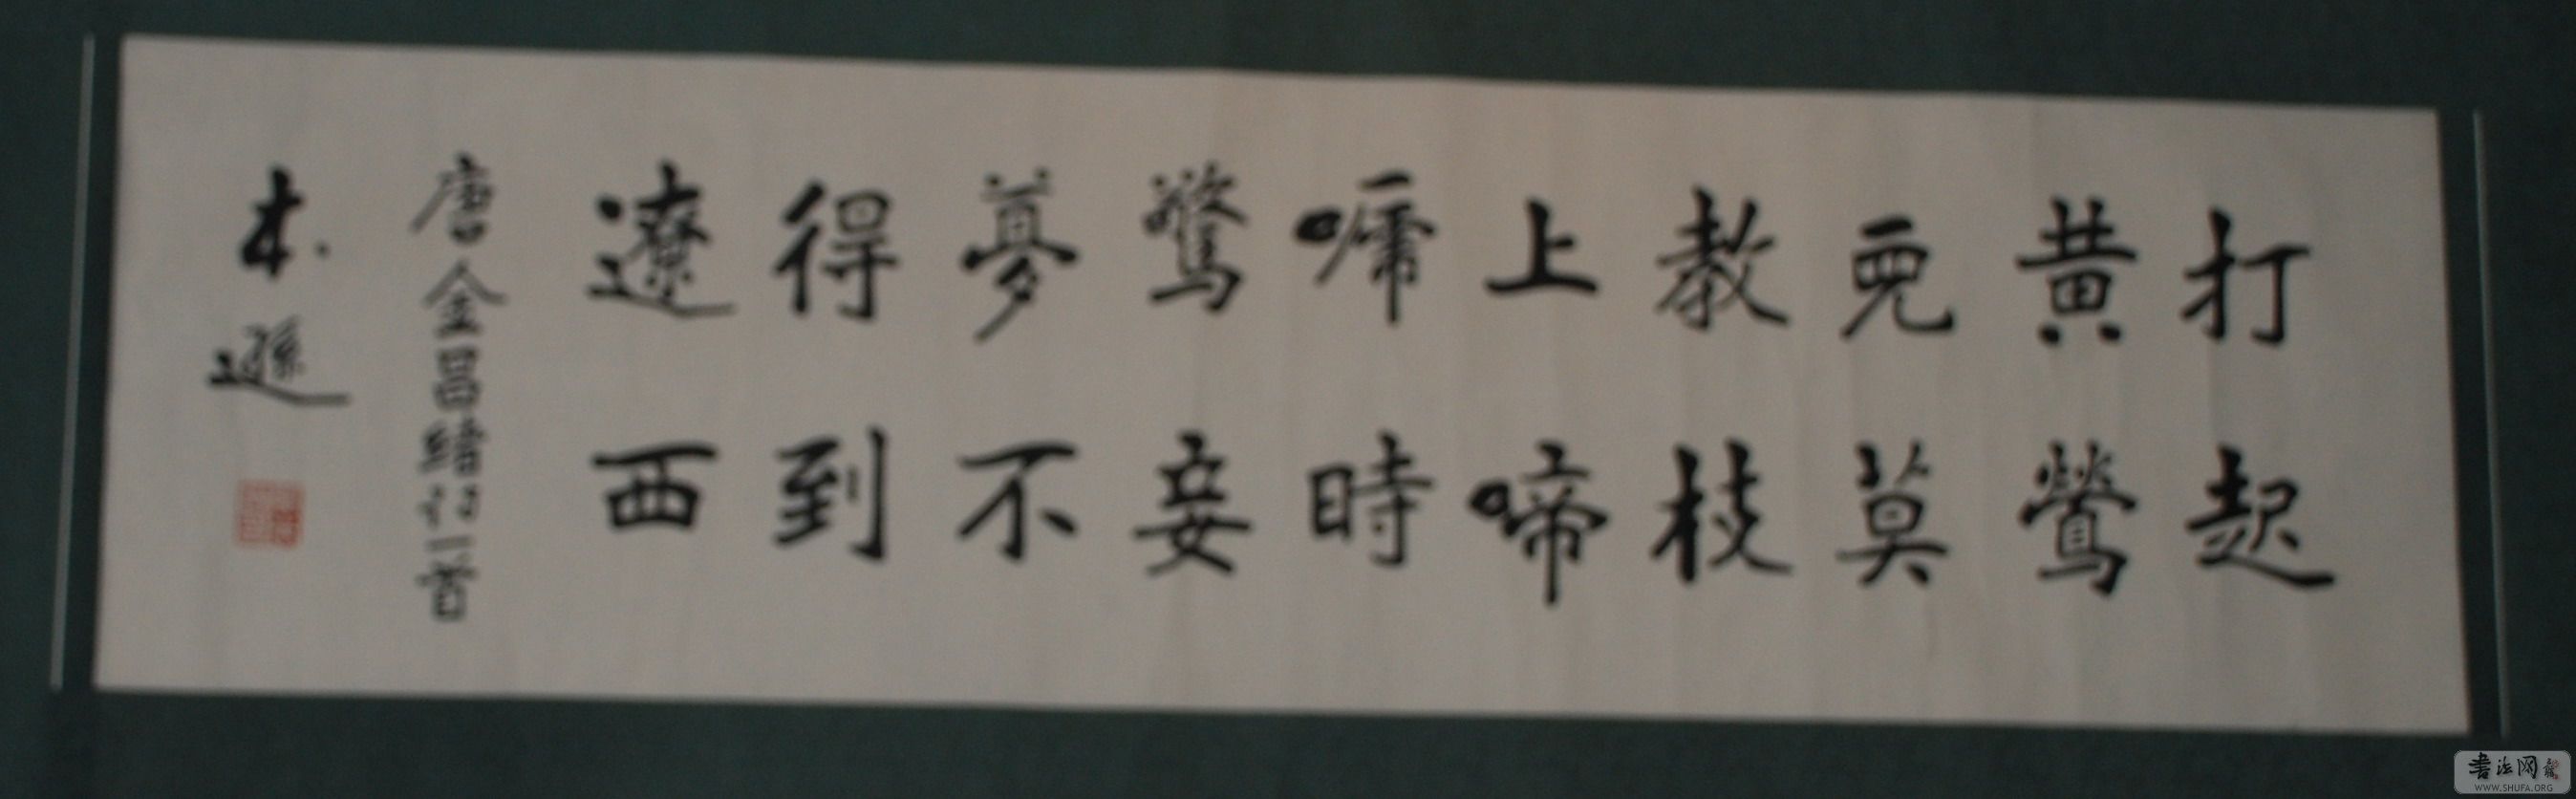 打起
黄鶯
兒莫
教枝
上啼
嗁時
驚妾
夢不
得到
遼西
唐金昌緒詩一首
遜
書法网
WWW.SHUFA.ORG